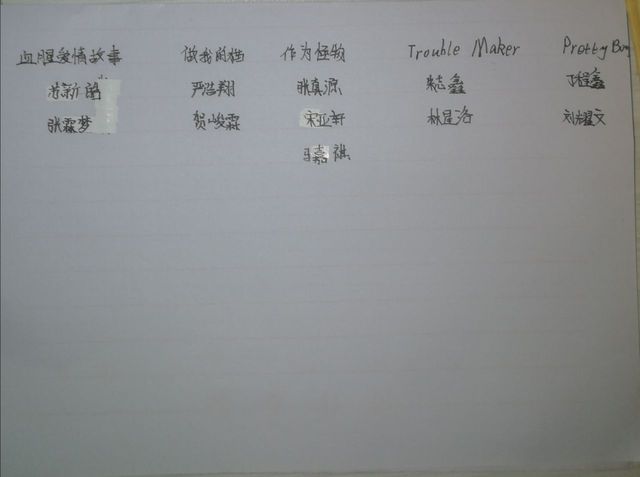 血腥爱情故事 做我的猫 作为怪物 Trouble Maker Pretty Boy
苏新皓 严浩翔 张真源 朱志鑫 丁程鑫
张霖梦 贺峻霖 宋亚轩 林星洛 刘耀文
马嘉祺